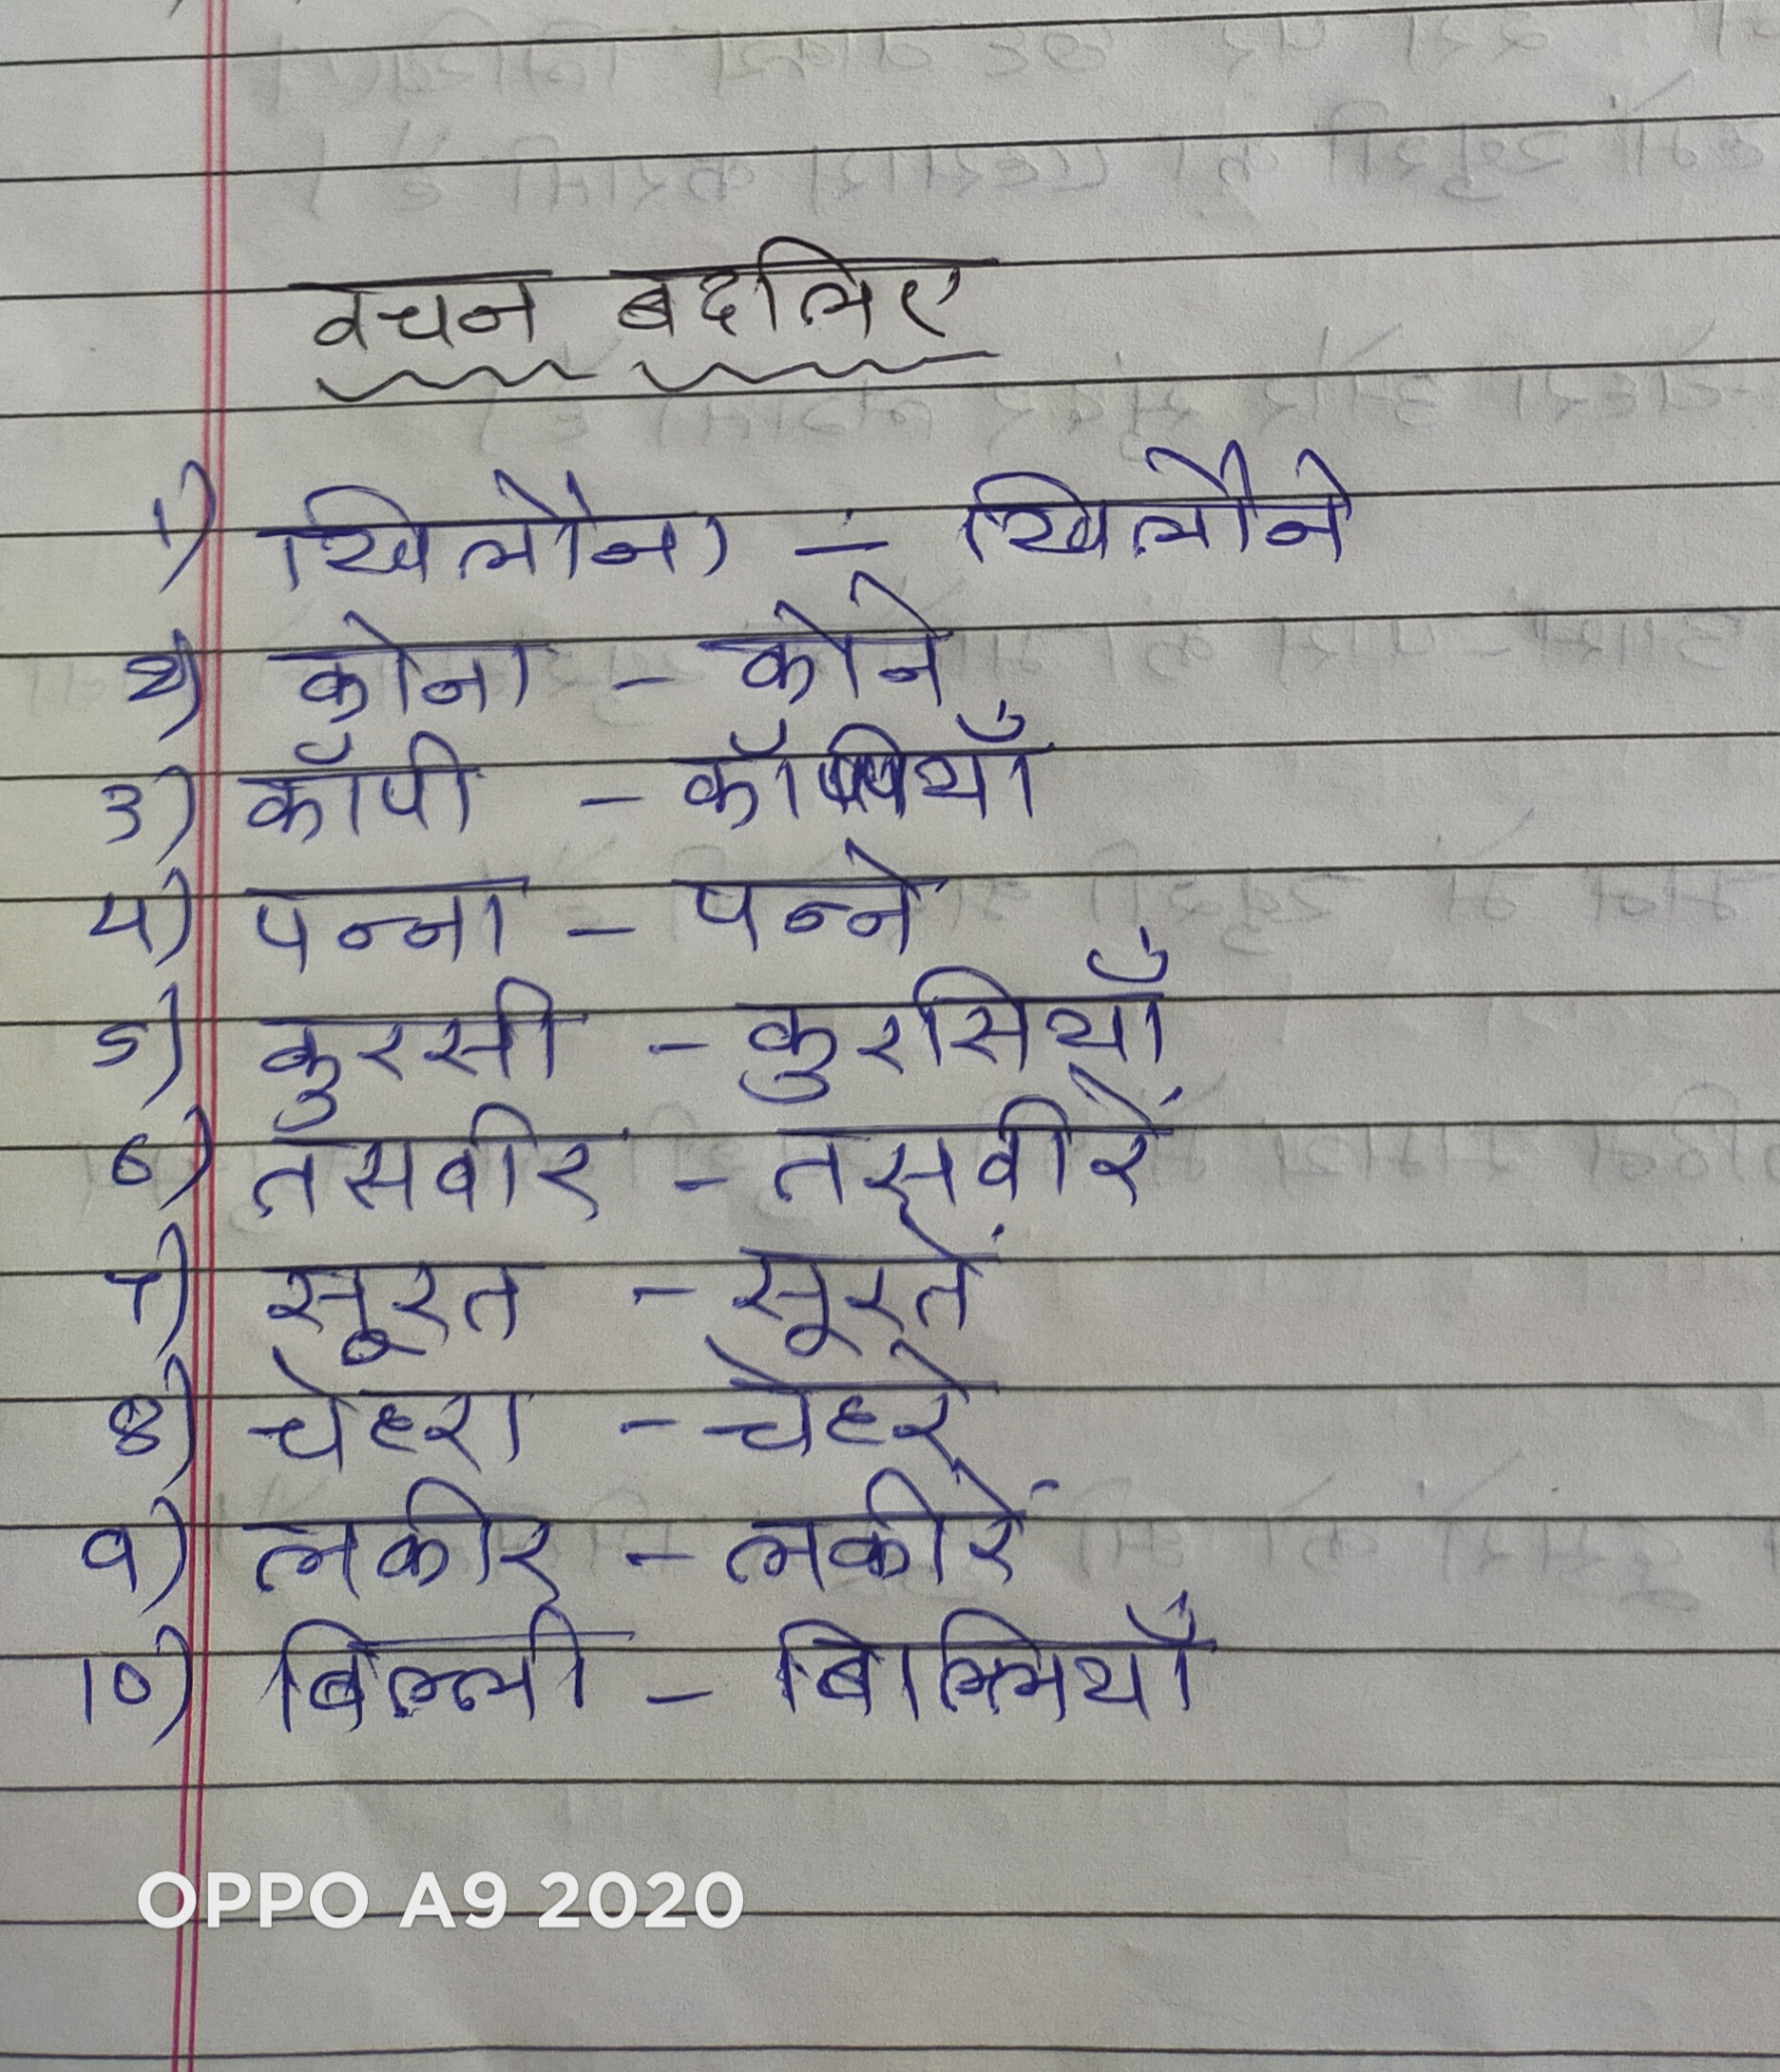 वचन बदलिए
1) खिलौना - खिलौने
2) कोना - कोने
3) कॉपी - कॉपियाँ
4) पन्ना - पन्ने
5) कुरसी - कुरसियाँ
6) तसवीर - तसवीरें
7) सूरत - सूरतें
8) चेहरा - चेहरे
9) लकीर - लकीरें
10) बिल्ली - बिल्लियाँ
OPPO A9 2020